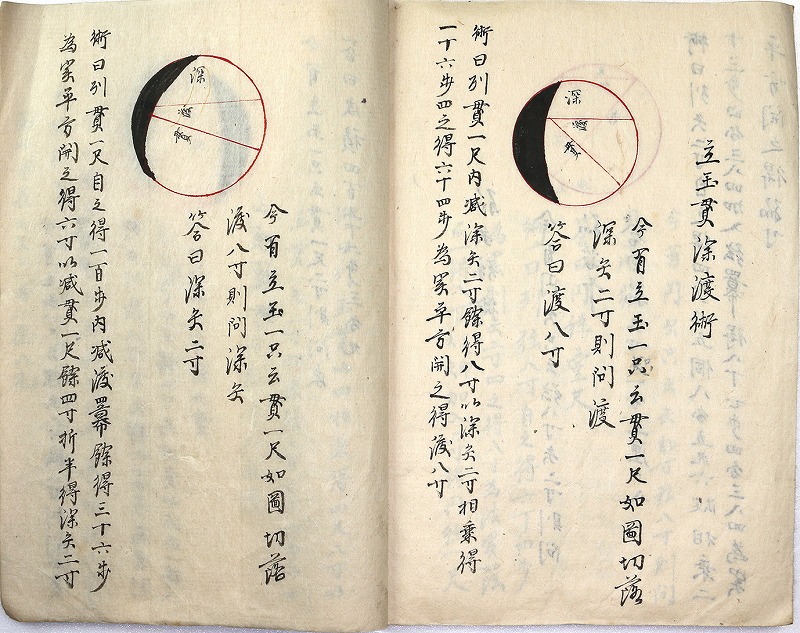 立玉貫深渡術
今有立玉一只云貫一尺如圖切落
深矢二寸則問渡
答曰渡八寸
深
渡
貫
術曰列貫一尺内减深矢二寸餘得八寸以深矢二寸相乗得
一十六歩四之得六十四歩為実平方開之得渡八寸
今有立玉一只云貫一尺如圖切落
渡八寸則問深矢
答曰深矢二寸
深
渡
貫
術曰列貫一尺自之得一百歩内减渡冪餘得三十六歩
為実平方開之得六寸以减貫一尺餘四寸折半得深矢二寸